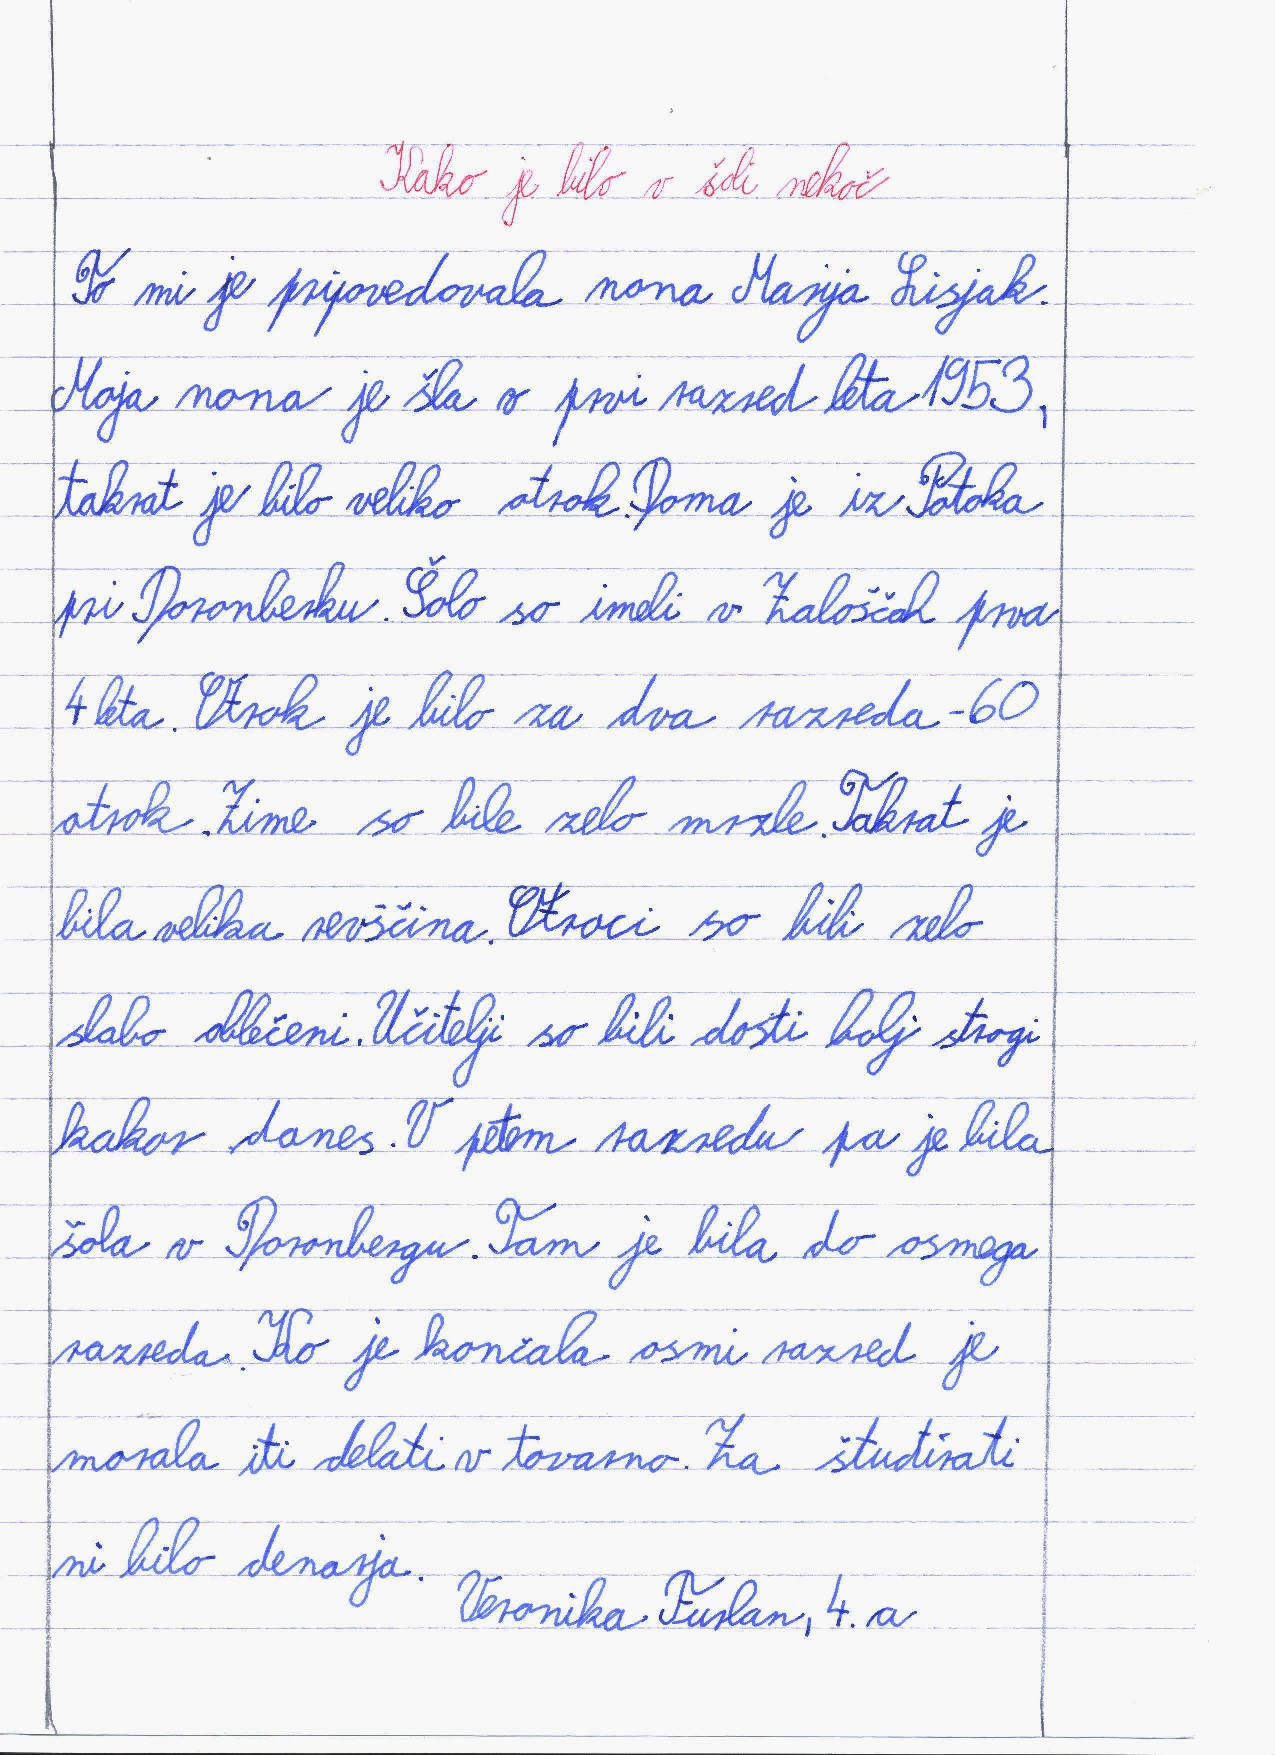 Kako je bilo v šoli nekoč
To mi je pripovedovala nona Marija Lisjak.
Moja nona je šla v prvi razred leta 1953,
takrat je bilo veliko otrok. Doma je iz Potoka
pri Dornberku. Šolo so imeli v Zaloščah prva
4 leta. Otrok je bilo za dva razreda - 60
otrok. Zime so bile zelo mrzle. Takrat je
bila velika revščina. Otroci so bili zelo
slabo oblečeni. Učitelji so bili dosti bolj strogi
kakor danes. V petem razredu pa je bila
šola v Dornbergu. Tam je bila do osmega
razreda. Ko je končala osmi razred je
morala iti delati v tovarno. Za študirati
ni bilo denarja.
Veronika Furlan, 4. a